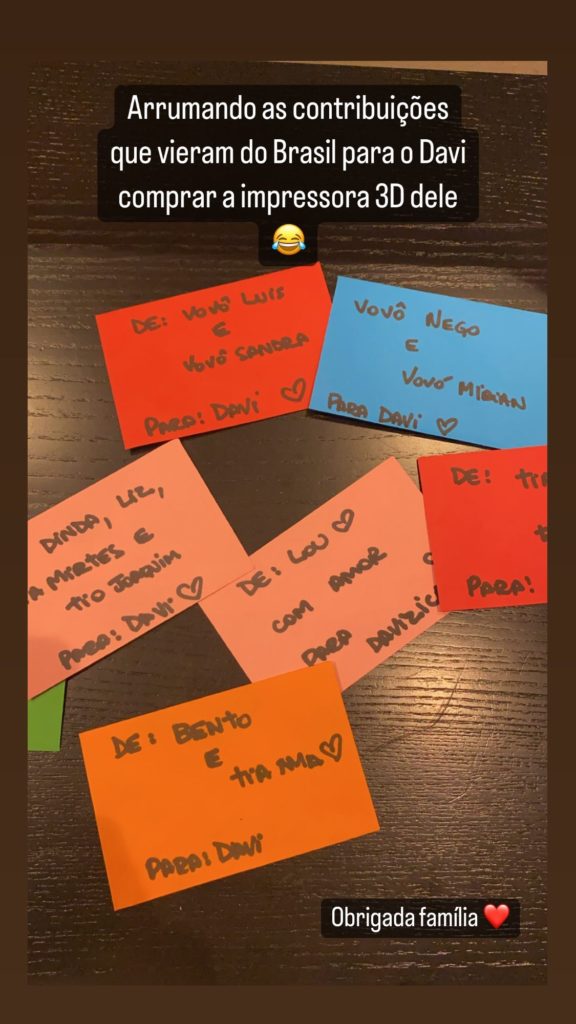 Arrumando as contribuições
que vieram do Brasil para o Davi
comprar a impressora 3D dele
😂
DE: VOVÔ LUIS
E
VOVÓ SANDRA
PARA: DAVI ♡
VOVÔ NEGO
E
VOVÓ MÍRIAN
PARA DAVI ♡
DINDA, LIZ,
MIRTES E
TIO JOAQUIM
PARA: DAVI ♡
DE: LOU ♡
COM AMOR
PARA
DE:
PARA:
DE: BENTO
E
TIA
PARA: DAVI
Obrigada família ❤️